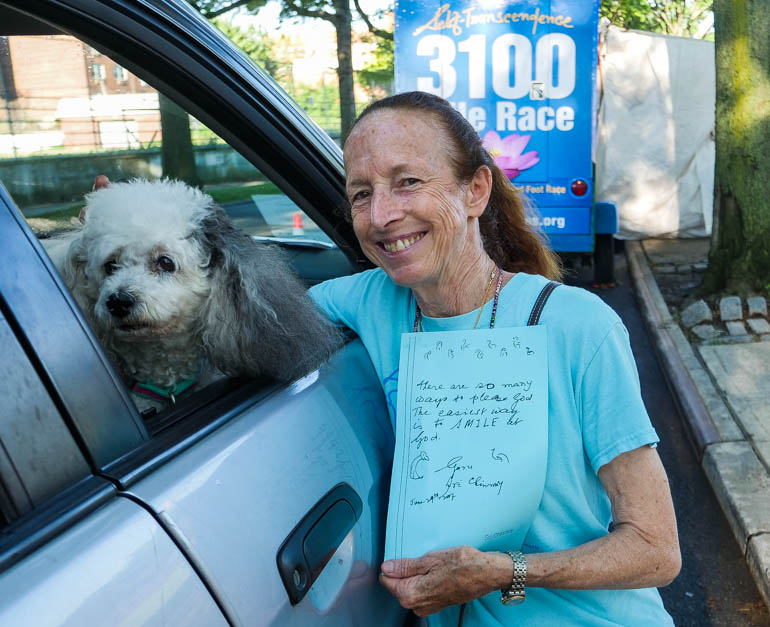 Self-Transcendence
3100
le Race
d Foot Race
s.org
there are so many
ways to please God.
The easiest way
is to SMILE at
God.
Guru
Sri Chinmoy